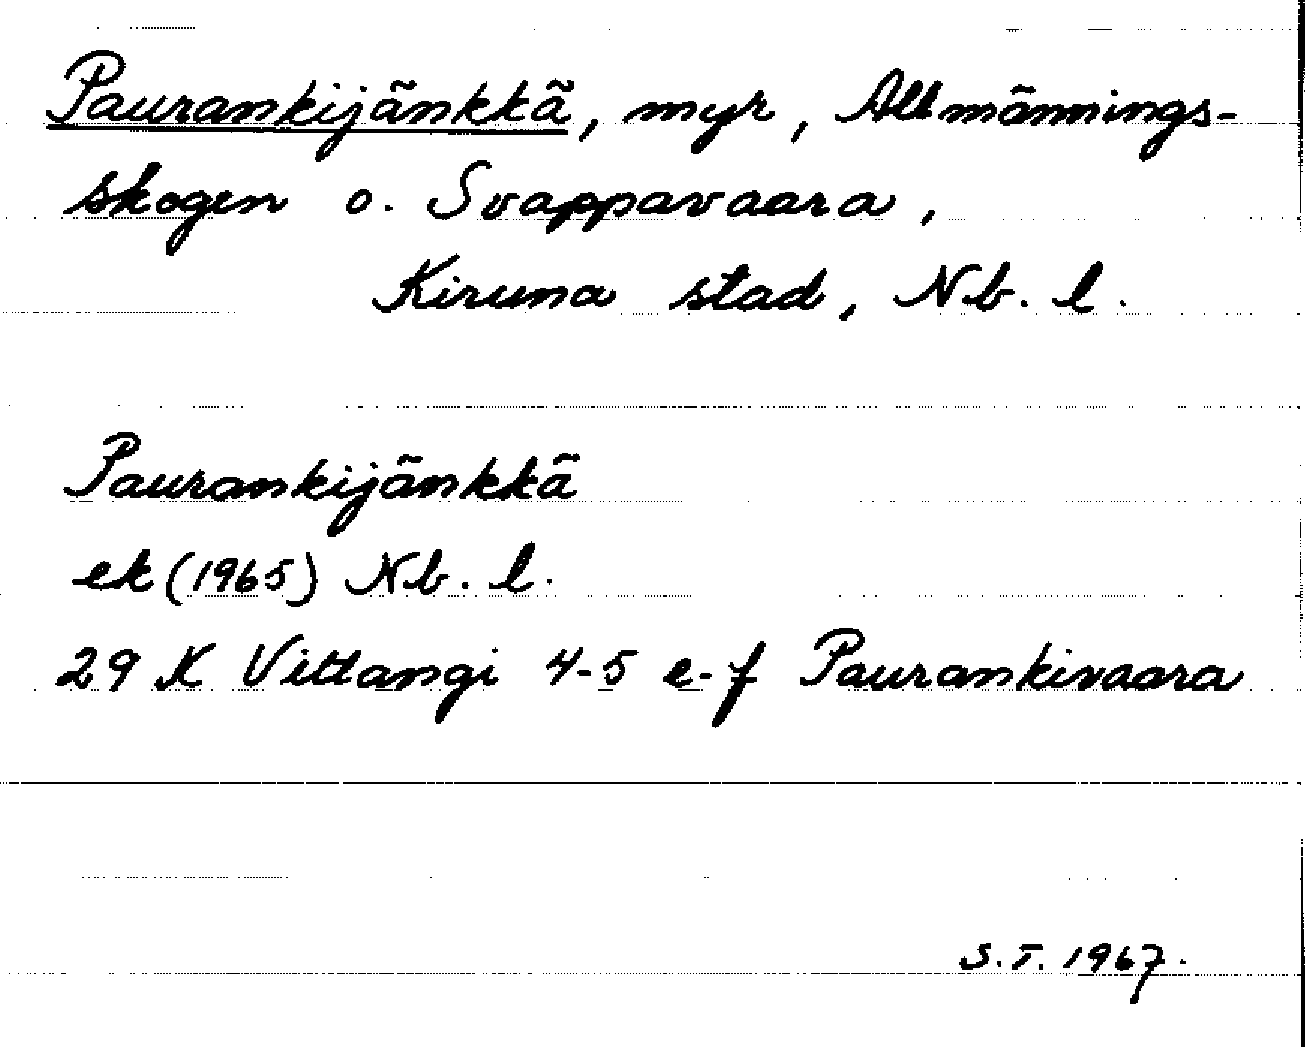 Paurankijänkkä, myr, Allmännings-
skogen o. Svappavaara,
Kiruna stad, Nb. l.
Paurankijänkkä
ek (1965) Nb. l.
29 K Vittangi 4-5 e-f Paurankivaara
S.T. 1967.